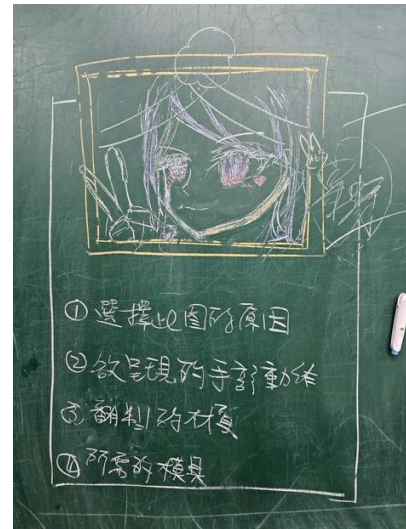 ①選擇此图的原因
②欲呈現的手部動作
③翻制的材質
④所需的模具